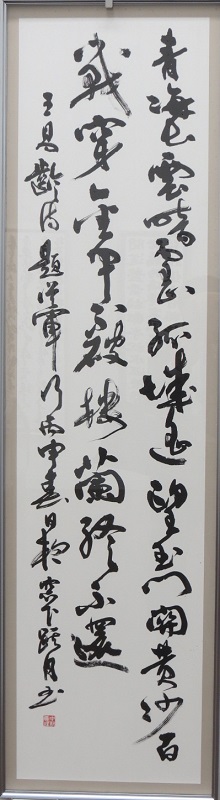 青海長雲暗雪山孤城遥望玉門關黄沙百
戰穿金甲不破楼蘭終不還
王昌齡詩題從軍行丙申春日窓下月书